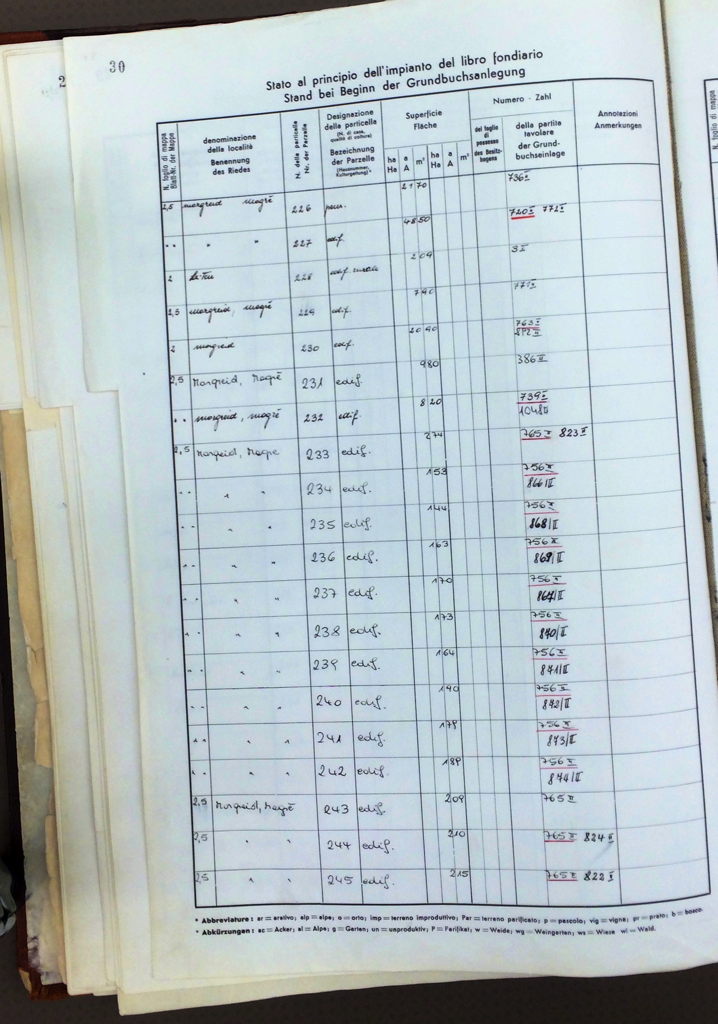 30
Stato al principio dell'impianto del libro fondiario
Stand bei Beginn der Grundbuchsanlegung
N. foglio di mappa
Blatt-Nr. der Mappe
denominazione
della località
Benennung
des Riedes
N. della particella
Nr. der Parzelle
Designazione
della particella
(N. di casa,
qualità di coltura)
Bezeichnung
der Parzelle
(Hausnummer,
Kulturgattung)*
Superficie
Fläche
ha a m² ha a m²
Ha A Ha A
Numero - Zahl
del foglio
di possesso
des Besitz-
bogens
della partita
tavolare
der Grund-
buchseinlage
Annotazioni
Anmerkungen
2,5 margreid magrè 226 21 70 736 II
" " " " 227 edif. 48 50 720 II 772 II
2 228 edif. rurale 2 09 3 II
2,5 margreid, magrè 229 edif. 7 90 771 II
2 margreid 230 edif. 20 90 763 II
892 II
2,5 Margreid, Magrè 231 edif. 9 80 386 II
" " margreid, magrè 232 edif. 8 20 739 II
1048 II
2,5 Margreid, Magrè 233 edif. 2 74 765 II 823 II
" " " " 234 edif. 1 53 756 II
866/II
" " " " 235 edif. 1 44 756 II
868/II
" " " " 236 edif. 1 63 756 II
869/II
" " " " 237 edif. 1 70 756 II
867/II
" " " " 238 edif. 1 73 756 II
870/II
" " " " 239 edif. 1 64 756 II
871/II
" " " " 240 edif. 1 90 756 II
872/II
" " " " 241 edif. 1 79 756 II
873/II
" " " " 242 edif. 1 89 756 II
874/II
2,5 Margreid, Magrè 243 edif. 2 09 765 II
2,5 " " 244 edif. 2 10 765 II 824 II
2,5 " " 245 edif. 2 15 765 II 822 II
* Abbreviature: ar = arativo; alp = alpe; o = orto; imp = terreno improduttivo; Par = terreno parificato; p = pascolo; vig = vigna; pr = prato; b = bosco.
* Abkürzungen: ac = Acker; al = Alpe; g = Garten; un = unproduktiv; P = Parifikat; w = Weide; wg = Weingarten; ws = Wiese wl = Wald.